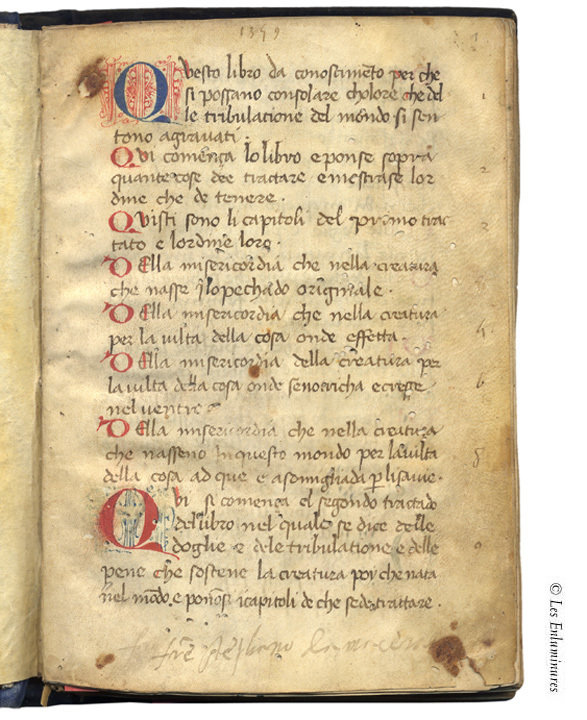 1359
Questo libro da conoscimēto per che
si possano consolare choloro che del
le tribulatione del mondo si sen
tono agravati.
Qui comença lo libro e ponse sopra
quante cose dee tractare e mostrase lor
dine che de tenere.
Quisti sono li capitoli del primo trac
tato e lordine loro.
Della misericordia che nella creatura
che nasse ī lo pechado originale.
Della misericordia che nella creatura
per la vilta della cosa onde effetta.
Della misericordia della creatura per
la vilta della cosa onde se notricha e cresse
nel ventre
Della misericordia che nella creatura
che nasseno in questo mondo per la vilta
della cosa ad que e asomigliada p
Qui si comença el segondo tractado
del libro nel quale se dice delle
doghe e dele tribulatione e delle
pene che sostene la creatura poy che nata
nel mōdo e ponōsi i capitoli de che se de trattare.
© Les Enluminures